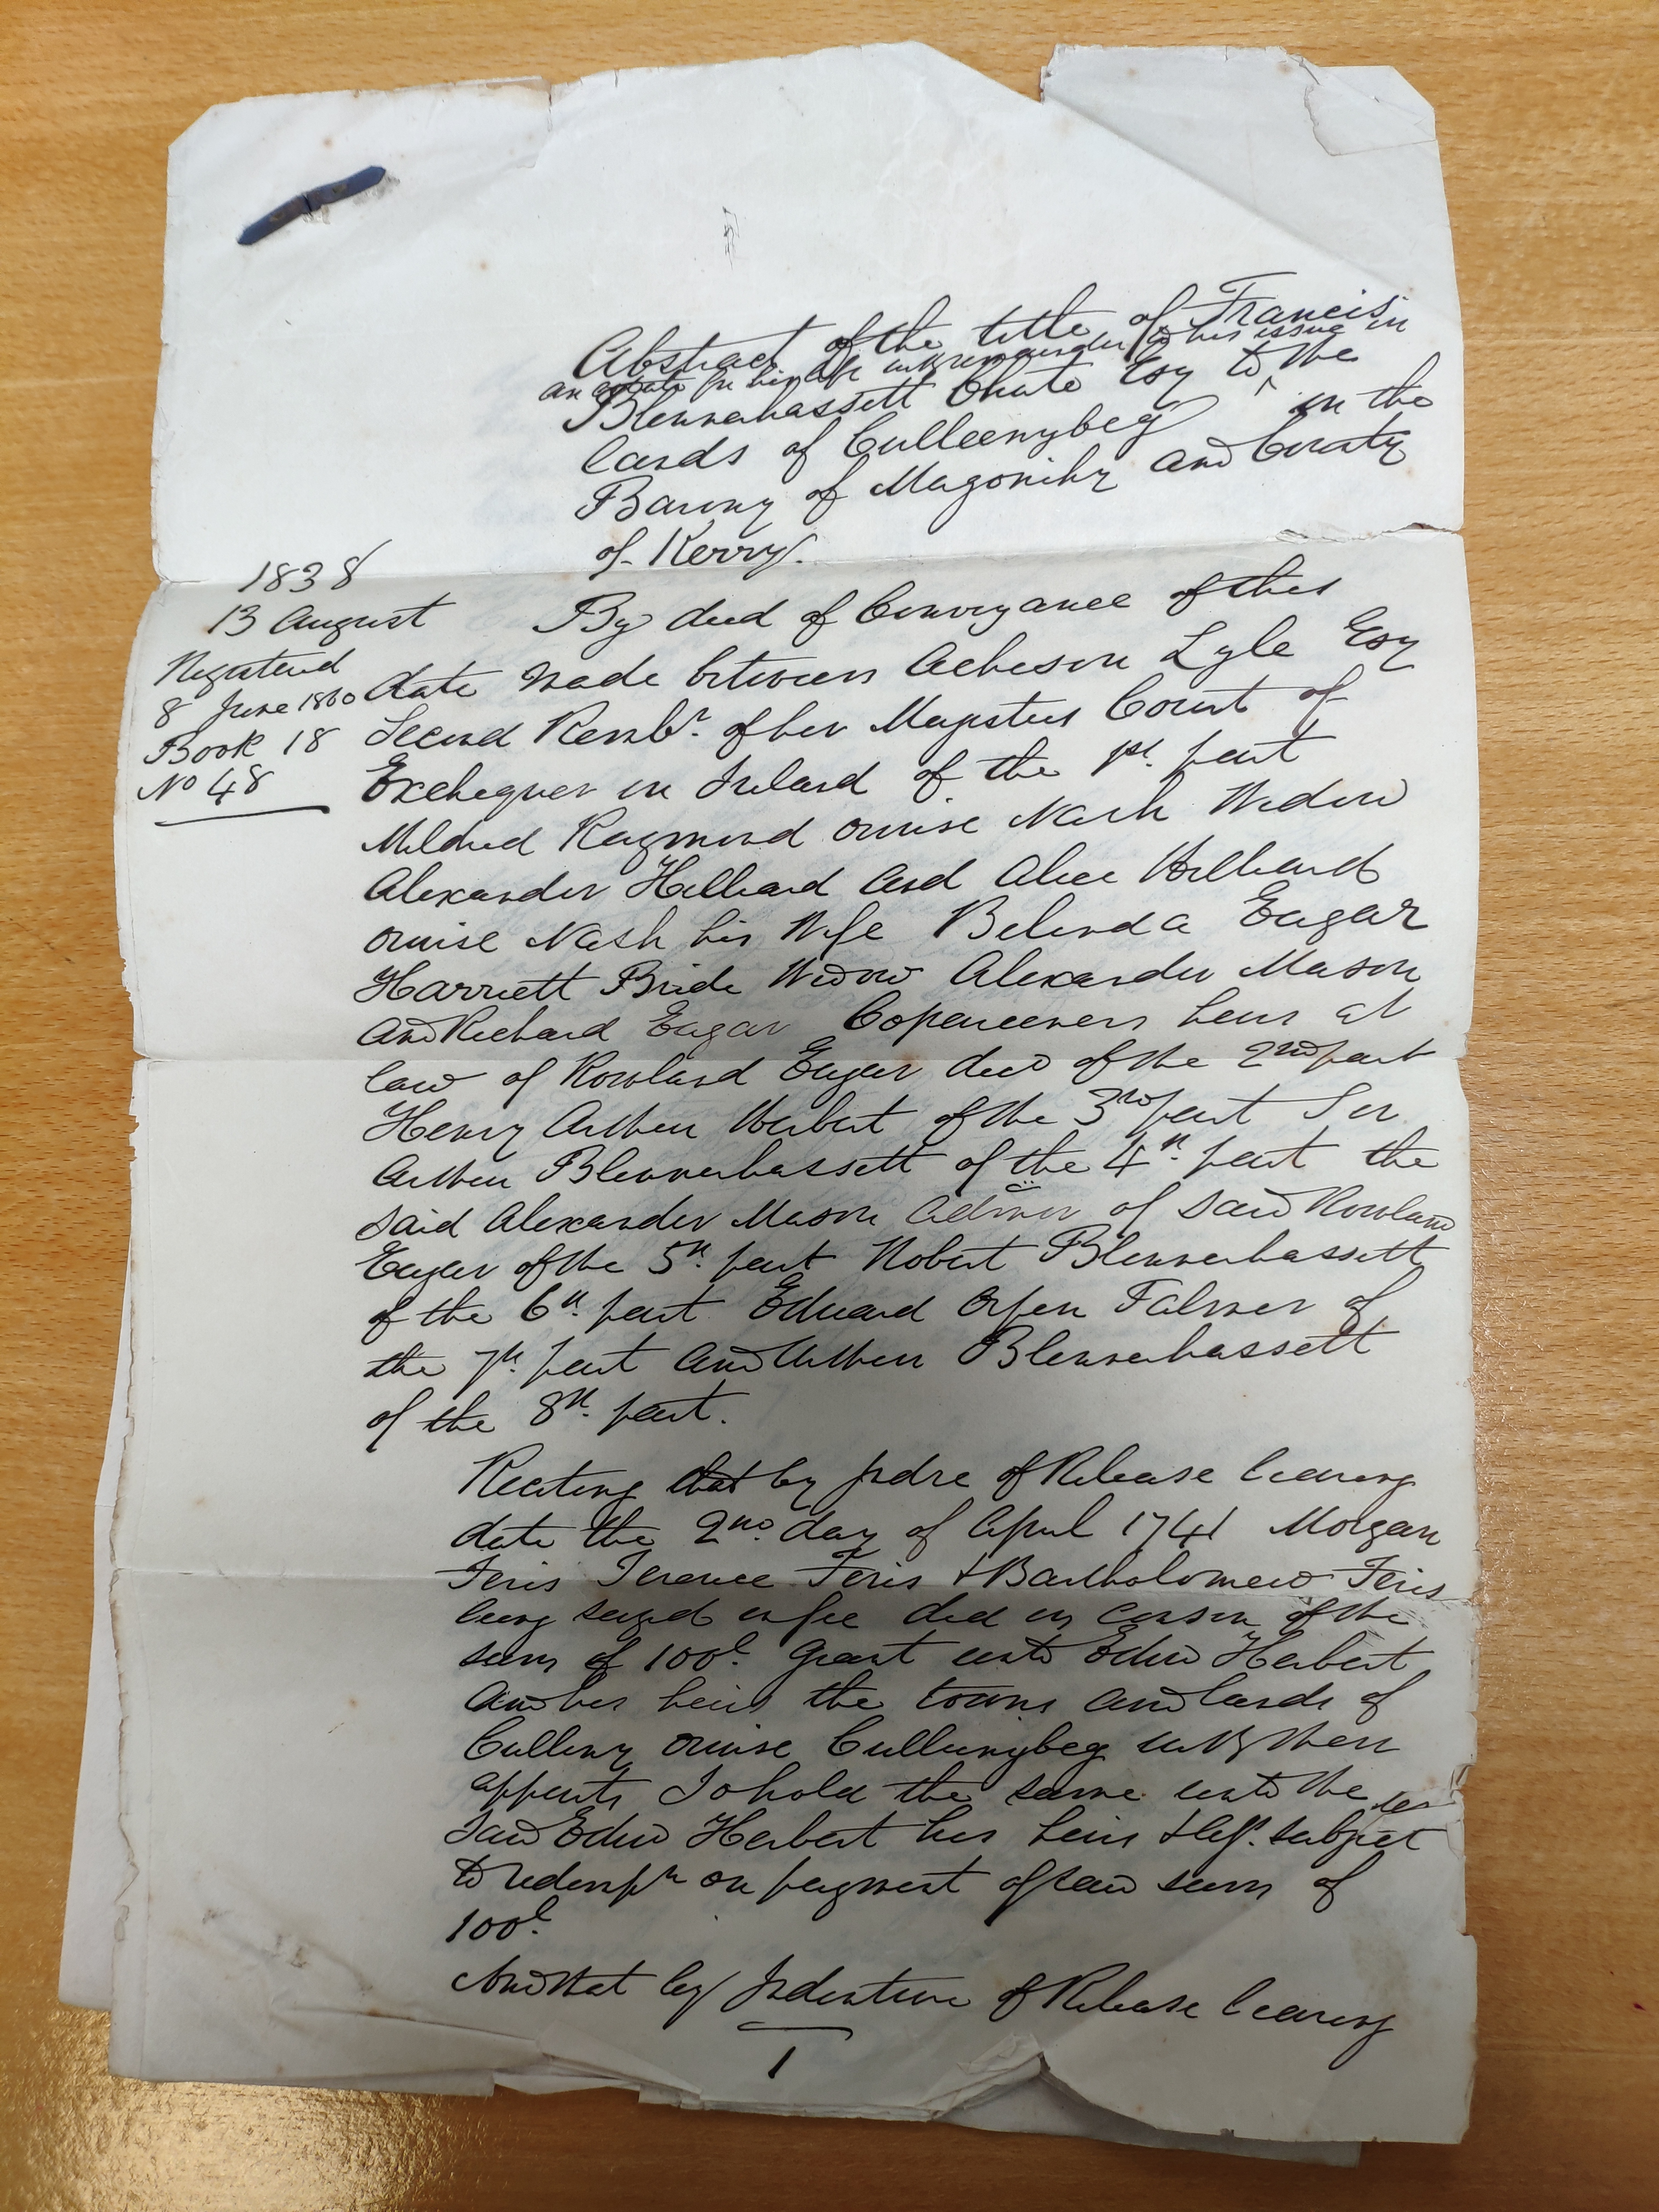 Abstract of the title of Francis
an estate for his life with remainder to his issue in
Blennerhassett Chute Esq to ^ the
lands of Culleenybeg in the
Barony of Magonihy and County
of Kerry.
1838
13 August
Registered
8 June 1860
Book 18
No 48
By deed of Conveyance of this
date made between Acheson Lyle Esq
Second Rembr. of her Majestys Court of
Exchequer in Ireland of the 1st. part
Mildred Raymond orwise Nash Widow
Alexander Hilliard and Alice Hilliard
orwise Nash his Wife Belinda Eagar
Harriett Bride Widow Alexander Mason
and Richard Eagar Coparceners heirs at
law of Rowland Eagar decd of the 2nd part
Henry Arthur Herbert of the 3rd part Sir
Arthur Blennerhassett of the 4th. part the
said Alexander Mason admor of said Rowland
Eagar of the 5th. part Robert Blennerhassett
of the 6th. part Edward Orpen Palmer of
the 7th. part and Arthur Blennerhassett
of the 8th. part.
Reciting that by Indre of Release bearing
date the 2nd. day of April 1741 Morgan
Feris Terence Feris & Bartholomew Feris
being seized in fee did in conson of the
sum of 100l. grant unto Edwd Herbert
and his heirs the towns and lands of
Culleny orwise Culleenybeg with their
appurts To hold the same unto the
said Edwd Herbert his heirs & assns. subject
to redempn on payment of said sum of
100l.
And that by Indenture of Release bearing
1